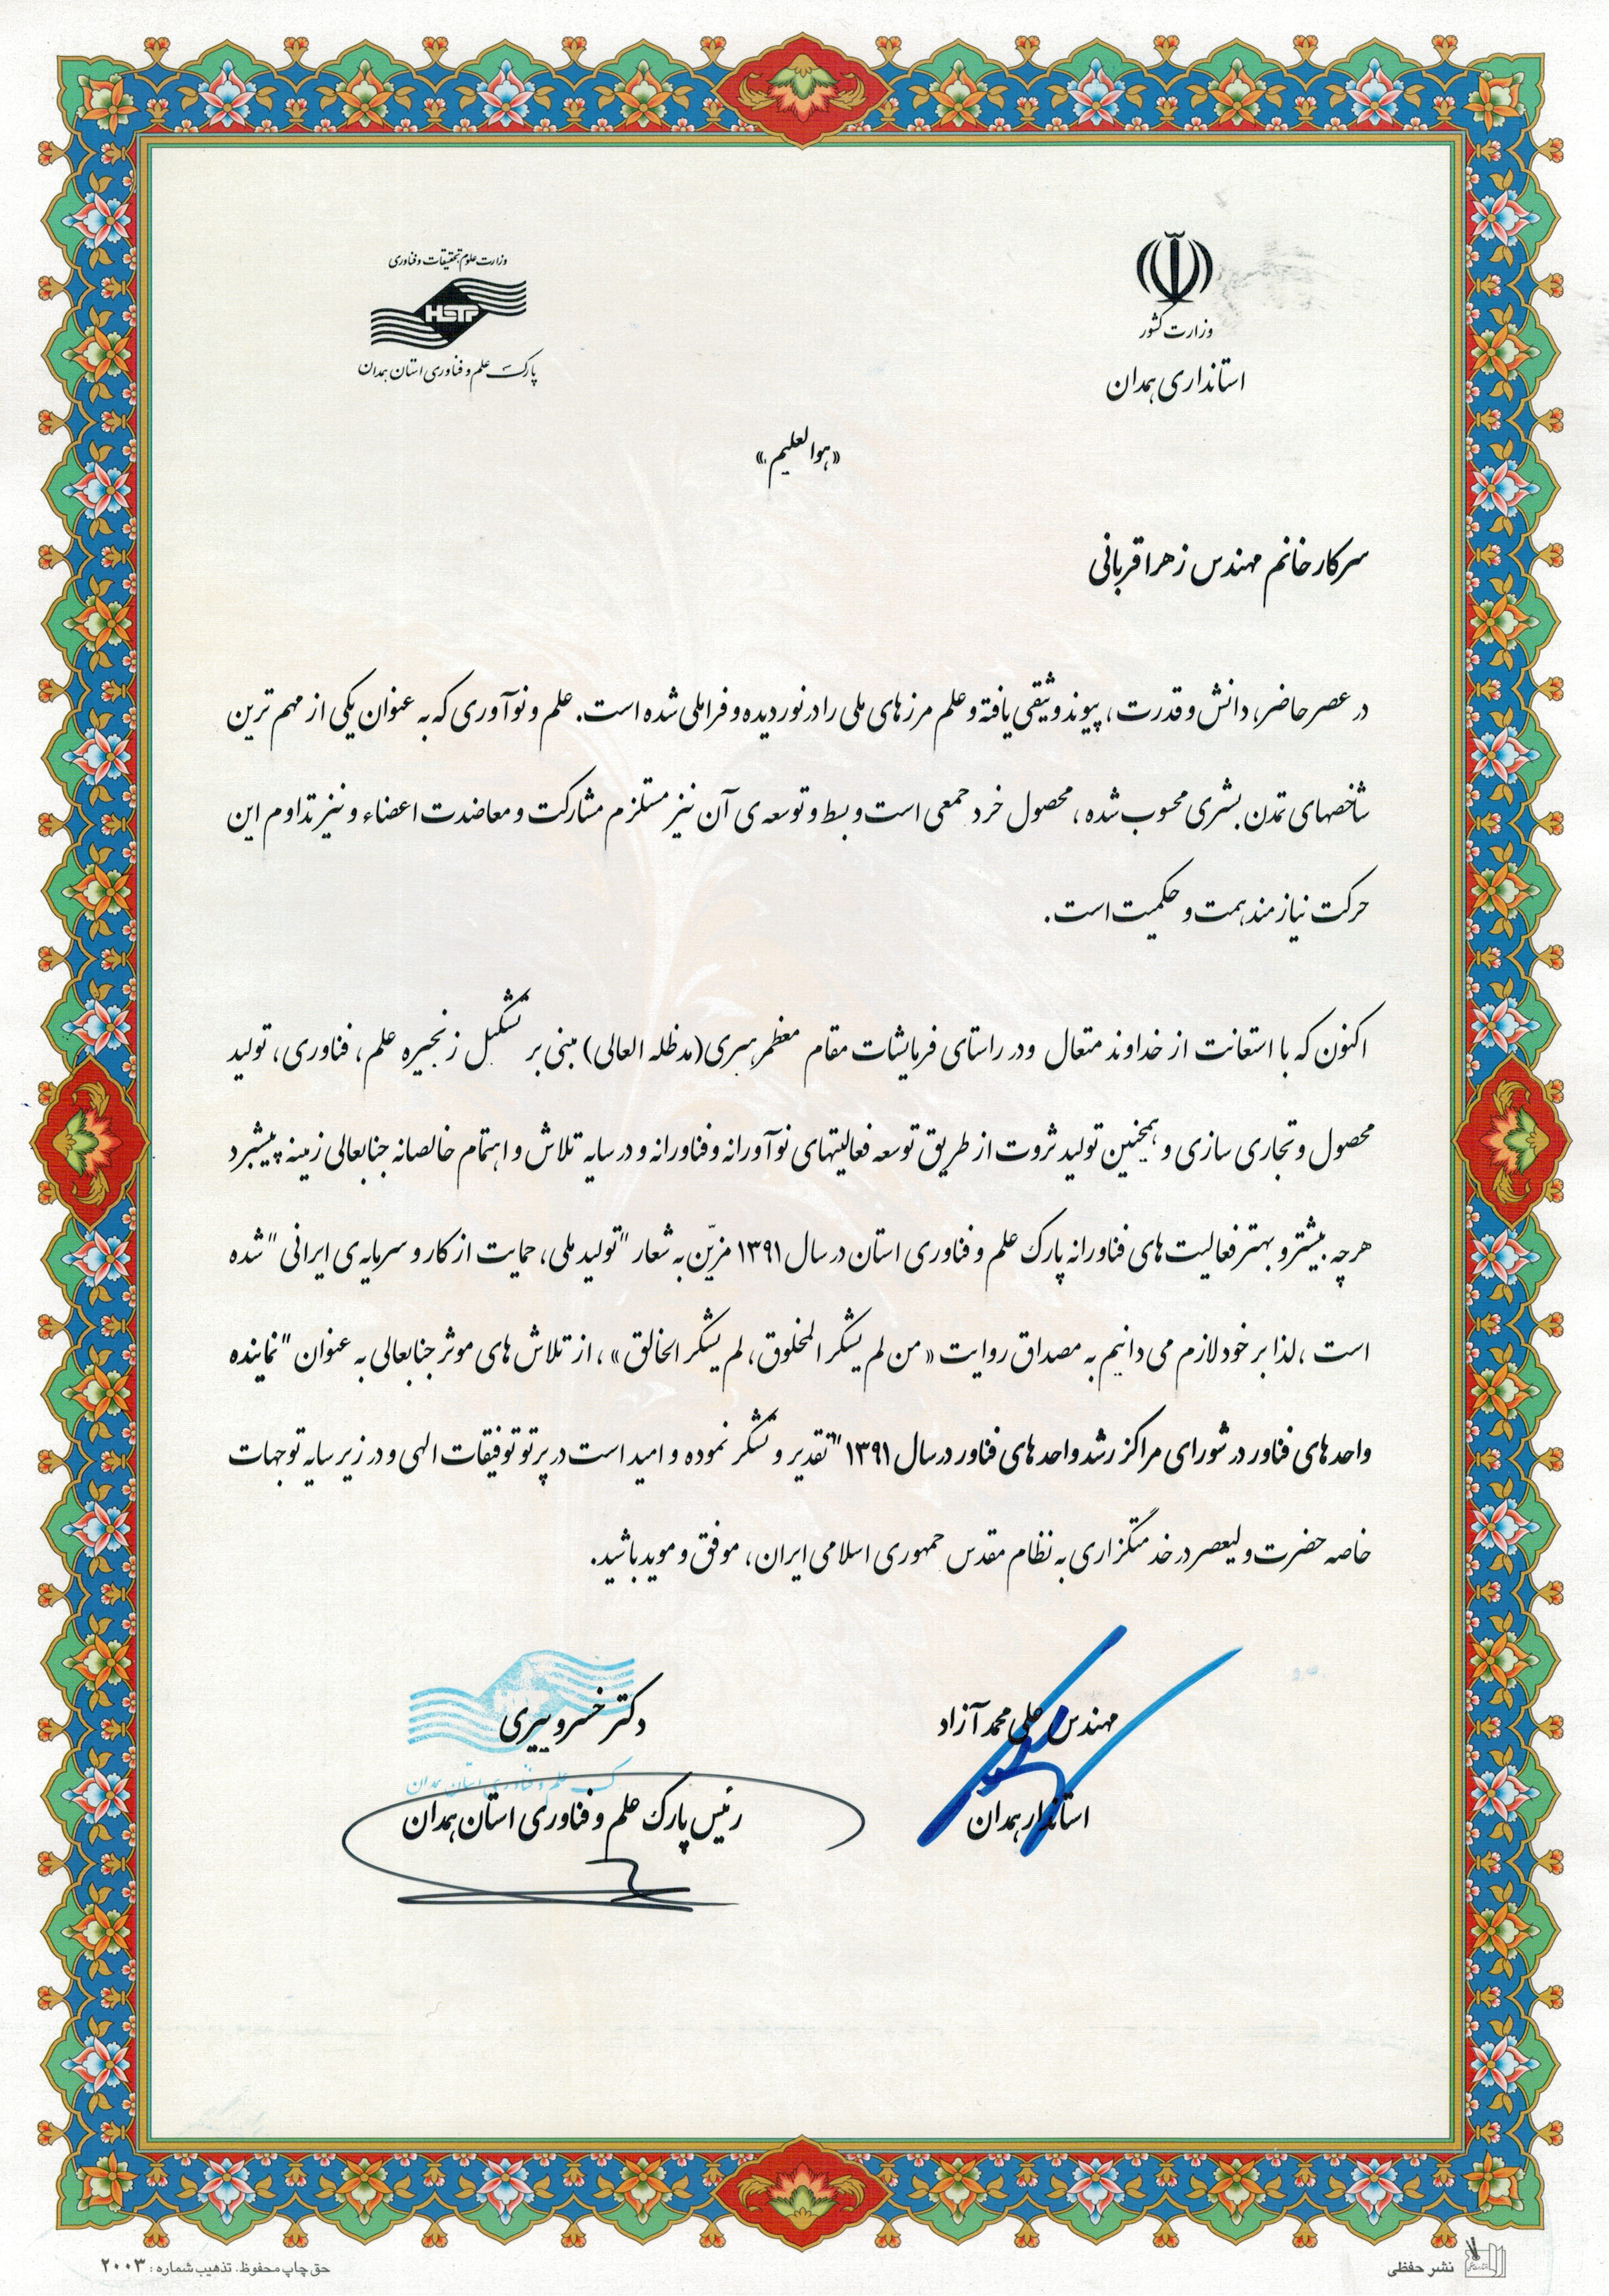 وزارت کشور
استانداری همدان
وزارت علوم تحقیقات و فناوری
HSTP
پارک علم و فناوری استان همدان
«هوالعلیم»
سرکار خانم مهندس زهرا قربانی
در عصر حاضر، دانش و قدرت، پیوند وثیقی یافته و علم مرزهای ملی را درنوردیده و فراملی شده است. علم و نوآوری که به عنوان یکی از مهم ترین
شاخصهای تمدن بشری محسوب شده، محصول خرد جمعی است و بسط و توسعه ی آن نیز مستلزم مشارکت و معاضدت اعضاء و نیز تداوم این
حرکت نیازمند همت و حکمیت است.
اکنون که با استعانت از خداوند متعال و در راستای فرمایشات مقام معظم رهبری(مدظله العالی) مبنی بر تشکیل زنجیره علم، فناوری، تولید
محصول و تجاری سازی و همچنین تولید ثروت از طریق توسعه فعالیتهای نوآورانه و فناورانه و در سایه تلاش و اهتمام خالصانه جنابعالی زمینه پیشبرد
هرچه بیشتر و بهتر فعالیت های فناورانه پارک علم و فناوری استان در سال ۱۳۹۱ مزیّن به شعار "تولید ملی، حمایت از کار و سرمایه ی ایرانی" شده
است، لذا بر خود لازم می دانیم به مصداق روایت «من لم یشکر المخلوق، لم یشکر الخالق»، از تلاش های موثر جنابعالی به عنوان "نماینده
واحدهای فناور در شورای مراکز رشد واحدهای فناور در سال ۱۳۹۱" تقدیر و تشکر نموده و امید است در پرتو توفیقات الهی و در زیر سایه توجهات
خاصه حضرت ولیعصر در خدمتگزاری به نظام مقدس جمهوری اسلامی ایران، موفق و موید باشید.
مهندس علی محمد آزاد
استاندار همدان
دکتر خسرو پیری
رئیس پارک علم و فناوری استان همدان
علم و فناوری استان همدان
نشر حفظی
حق چاپ محفوظ. تذهیب شماره: ۲۰۰۳